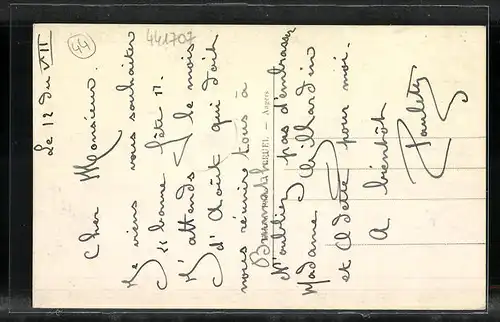 Le 12 du VII
44
441707
Cher Monsieur.
Je viens vous souhaiter
"bonne fête".
J'attends le mois
d'Août qui doit
nous réunir tous à
N'oubliez pas d'embrasser
Madame
et Odette pour moi.
A bientôt
Paulette
Angers